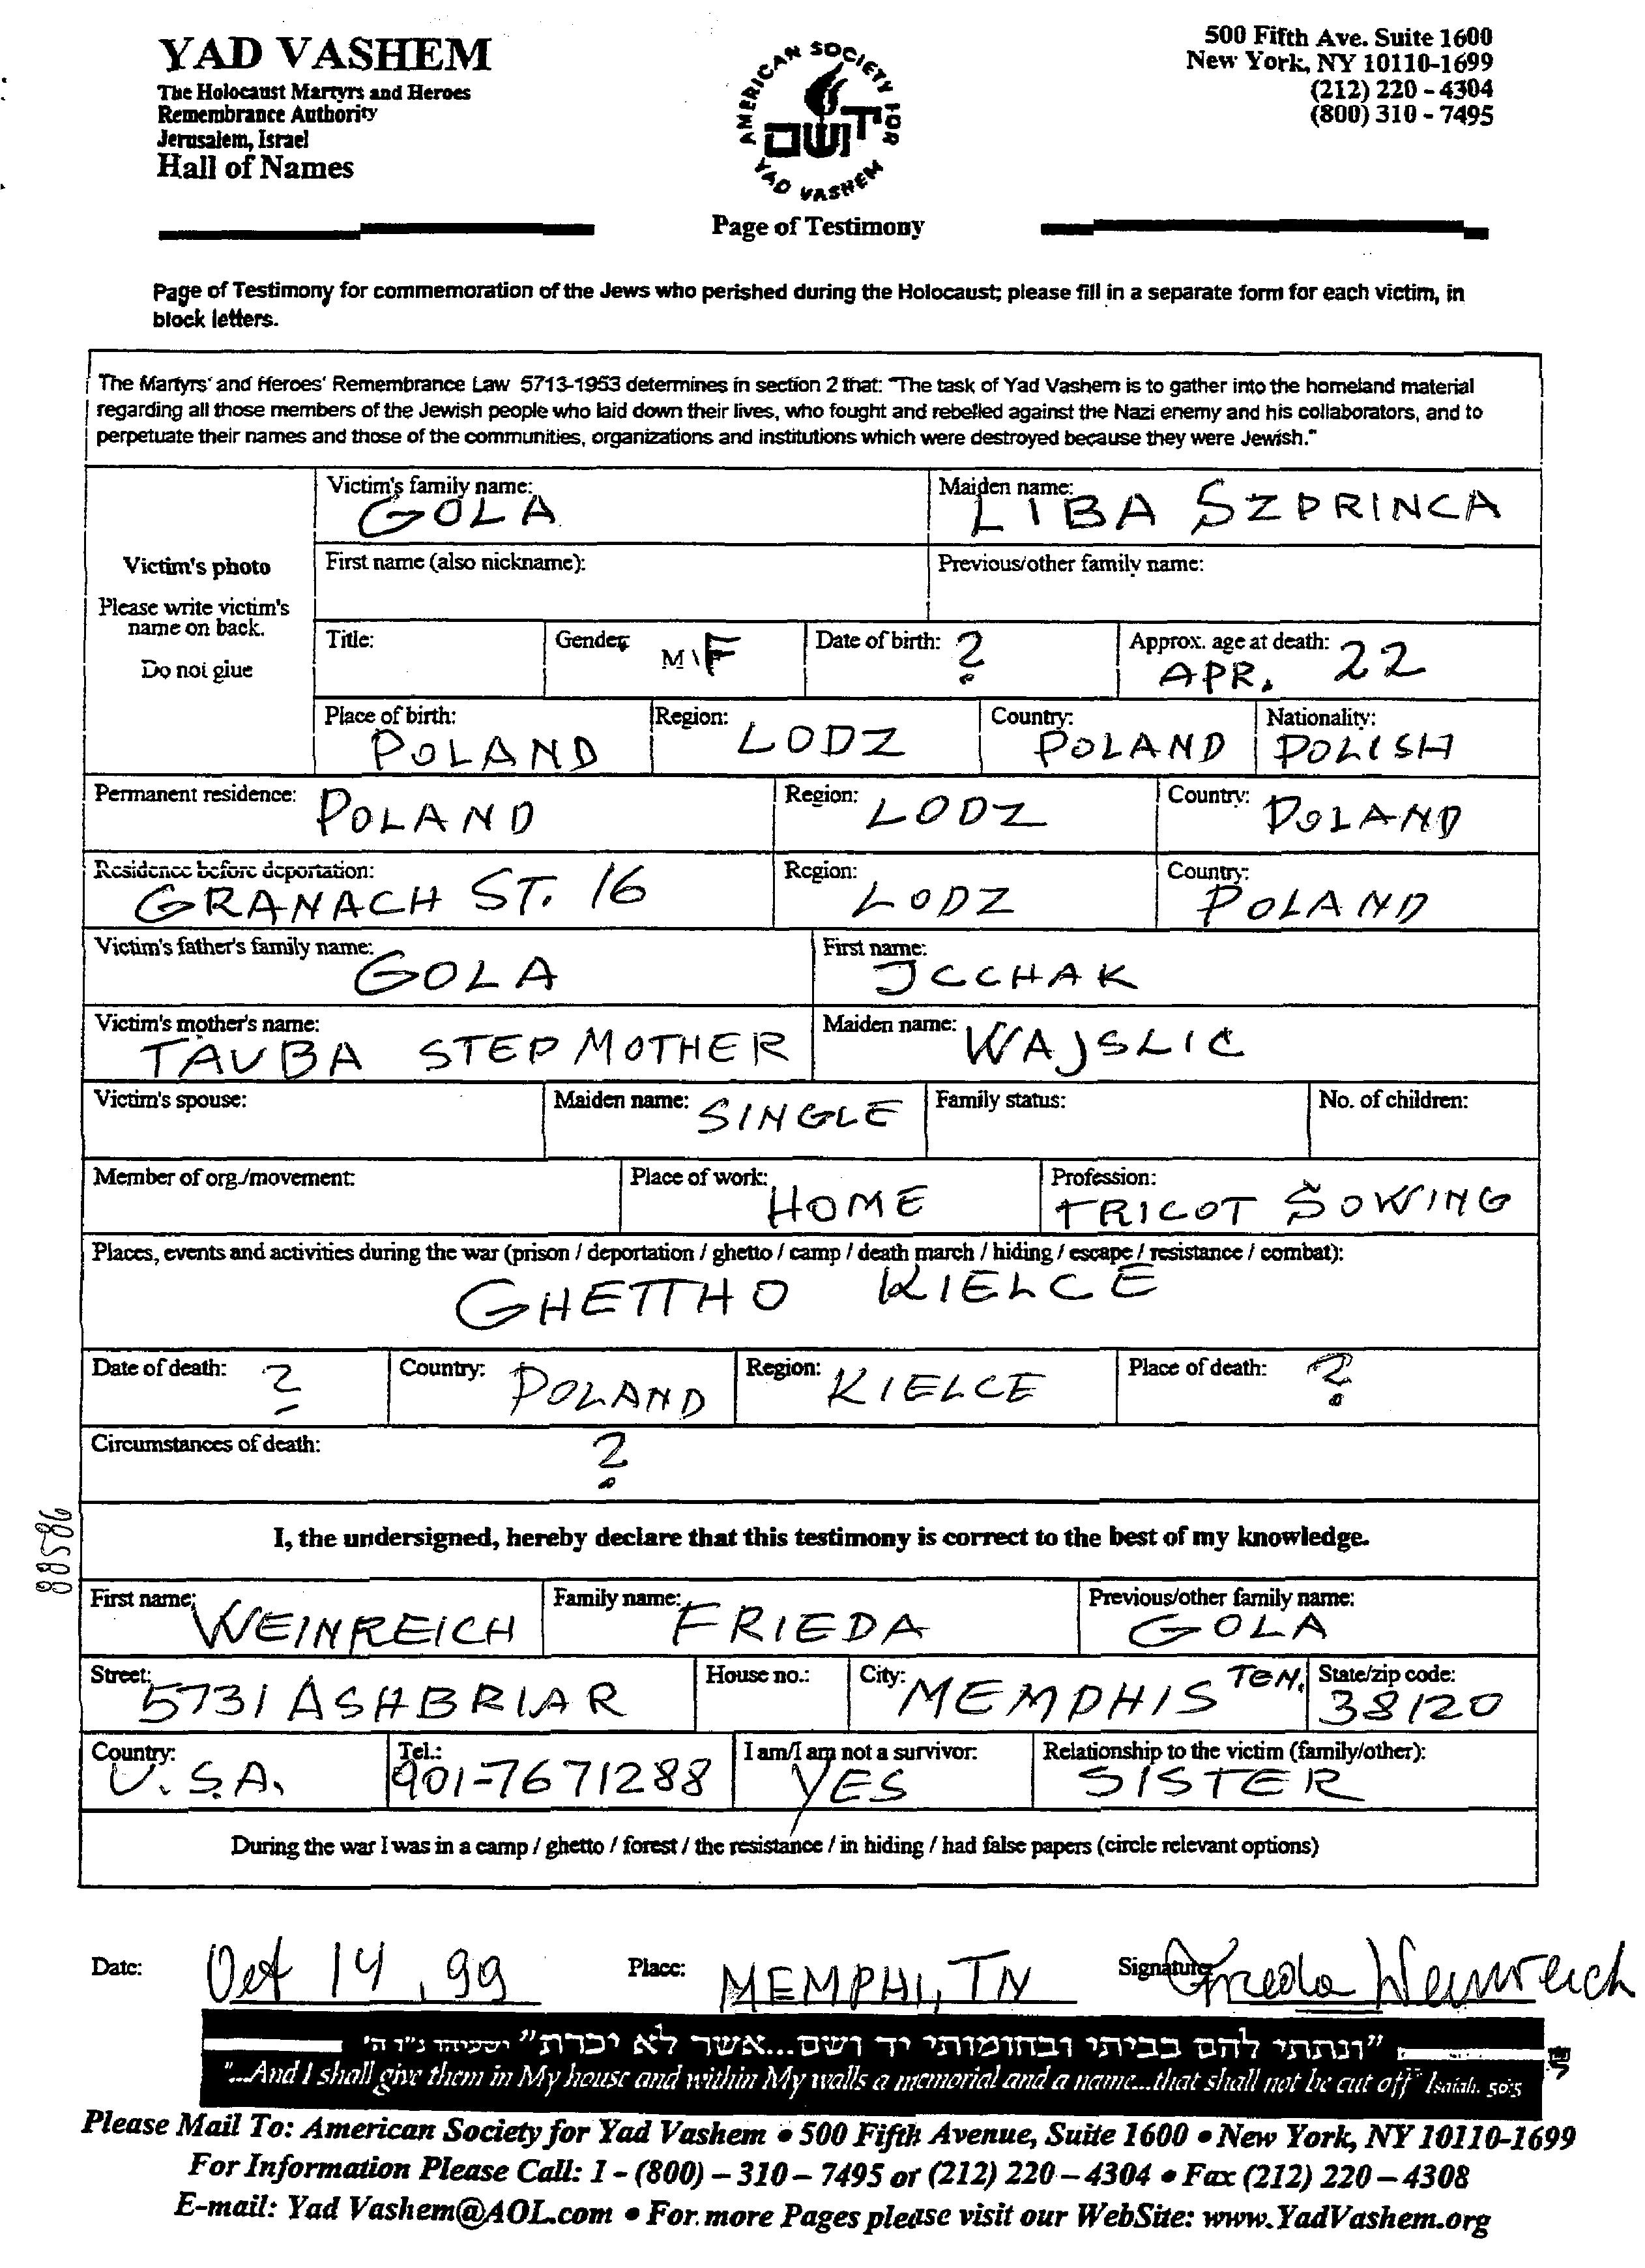 YAD VASHEM
The Holocaust Martyrs and Heroes
Remembrance Authority
Jerusalem, Israel
Hall of Names
AMERICAN SOCIETY FOR
יד ושם
YAD VASHEM
Page of Testimony
500 Fifth Ave. Suite 1600
New York, NY 10110-1699
(212) 220 - 4304
(800) 310 - 7495
Page of Testimony for commemoration of the Jews who perished during the Holocaust; please fill in a separate form for each victim, in
block letters.
The Martyrs' and Heroes' Remembrance Law 5713-1953 determines in section 2 that: "The task of Yad Vashem is to gather into the homeland material
regarding all those members of the Jewish people who laid down their lives, who fought and rebelled against the Nazi enemy and his collaborators, and to
perpetuate their names and those of the communities, organizations and institutions which were destroyed because they were Jewish."
Victim's photo
Please write victim's
name on back.
Do not glue
Victim's family name: GOLA
Maiden name: LIBA SZPRINCA
First name (also nickname):
Previous/other family name:
Title:
Gender: M\F
Date of birth: ?
Approx. age at death: APR. 22
Place of birth: POLAND
Region: LODZ
Country: POLAND
Nationality: POLISH
Permanent residence: POLAND
Region: LODZ
Country: POLAND
Residence before deportation: GRANACH ST. 16
Region: LODZ
Country: POLAND
Victim's father's family name: GOLA
First name: JCCHAK
Victim's mother's name: TAUBA STEPMOTHER
Maiden name: WAJSLIC
Victim's spouse:
Maiden name: SINGLE
Family status:
No. of children:
Member of org./movement:
Place of work: HOME
Profession: TRICOT SOWING
Places, events and activities during the war (prison / deportation / ghetto / camp / death march / hiding / escape / resistance / combat):
GHETTHO KIELCE
Date of death: ?
Country: POLAND
Region: KIELCE
Place of death: ?
Circumstances of death: ?
88586
I, the undersigned, hereby declare that this testimony is correct to the best of my knowledge.
First name: WEINREICH
Family name: FRIEDA
Previous/other family name: GOLA
Street: 5731 ASHBRIAR
House no.:
City: MEMPHIS TEN.
State/zip code: 38120
Country: U.S.A.
Tel.: 901-7671288
I am/I am not a survivor: YES
Relationship to the victim (family/other): SISTER
During the war I was in a camp / ghetto / forest / the resistance / in hiding / had false papers (circle relevant options)
Date: Oct 14, 99
Place: MEMPHI, TN
Signature: Frieda Weinreich
"ונתתי להם בביתי ובחומותי יד ושם...אשר לא יכרת" ישעיהו נ"ו ה'
"...And I shall give them in My house and within My walls a memorial and a name...that shall not be cut off" Isaiah. 56:5
Please Mail To: American Society for Yad Vashem • 500 Fifth Avenue, Suite 1600 • New York, NY 10110-1699
For Information Please Call: 1 - (800) – 310 – 7495 or (212) 220 – 4304 • Fax (212) 220 – 4308
E-mail: Yad Vashem@AOL.com • For more Pages please visit our WebSite: www.YadVashem.org